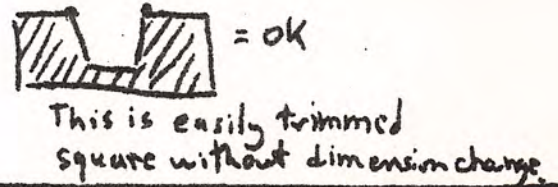 = OK
This is easily trimmed
square without dimension change.